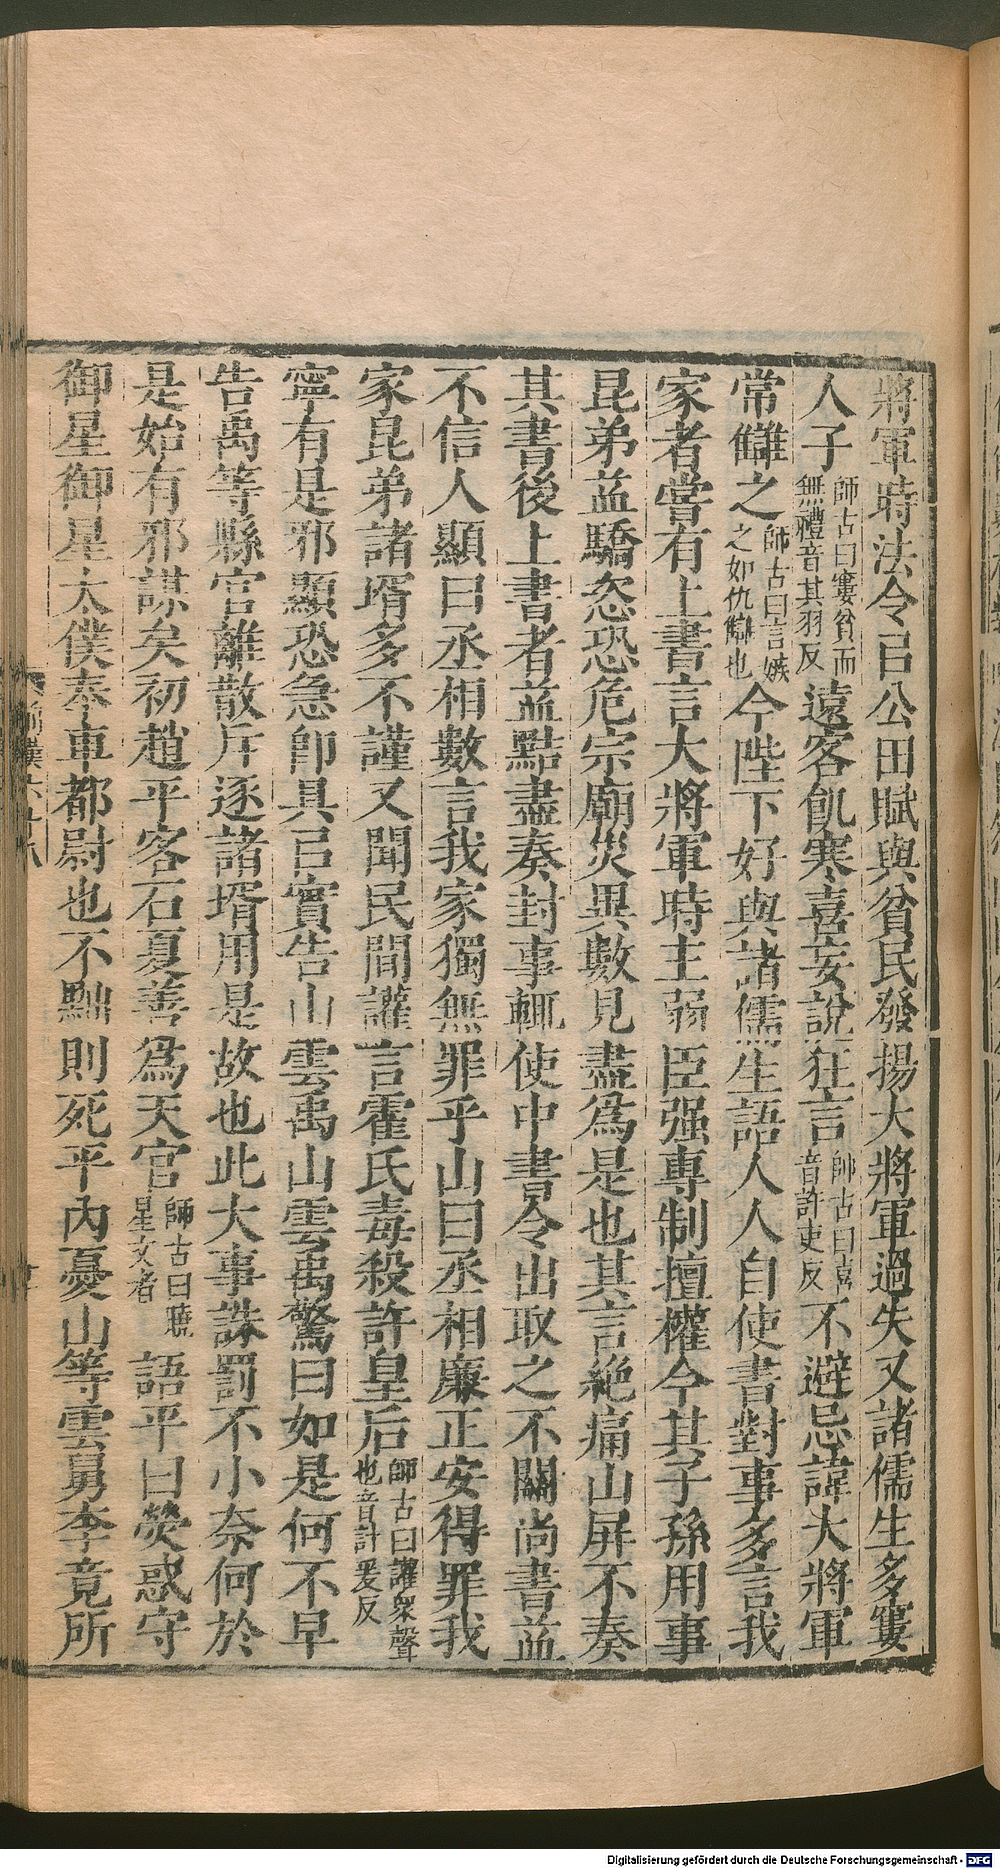 將軍時法令㠯公田賦與貧民發揚大將軍過失又諸儒生多窶
人子師古曰窶貧而無禮音其羽反遠客飢寒喜妄說狂言師古曰喜音許吏反不避忌諱大將軍
常讎之師古曰言嫉之如仇讎也今陛下好與諸儒生語人人自使書對事多言我
家者嘗有上書言大將軍時主弱臣强專制擅權今其子孫用事
昆弟益驕恣恐危宗廟災異數見盡爲是也其言絶痛山屏不奏
其書後上書者益黠盡奏封事輒使中書令出取之不關尚書益
不信人顯曰丞相數言我家獨無罪乎山曰丞相廉正安得罪我
家昆弟諸壻多不謹又聞民間讙言霍氏毒殺許皇后師古曰讙衆聲也音計爰反
寧有是邪顯恐急即具㠯實告山雲禹山雲禹驚曰如是何不早
告禹等縣官離散斥逐諸壻用是故也此大事誅罰不小奈何於
是始有邪謀矣初趙平客石夏善爲天官師古曰曉星文者語平曰熒惑守
御星御星太僕奉車都尉也不黜則死平內憂山等雲舅李竟所
前漢六十八